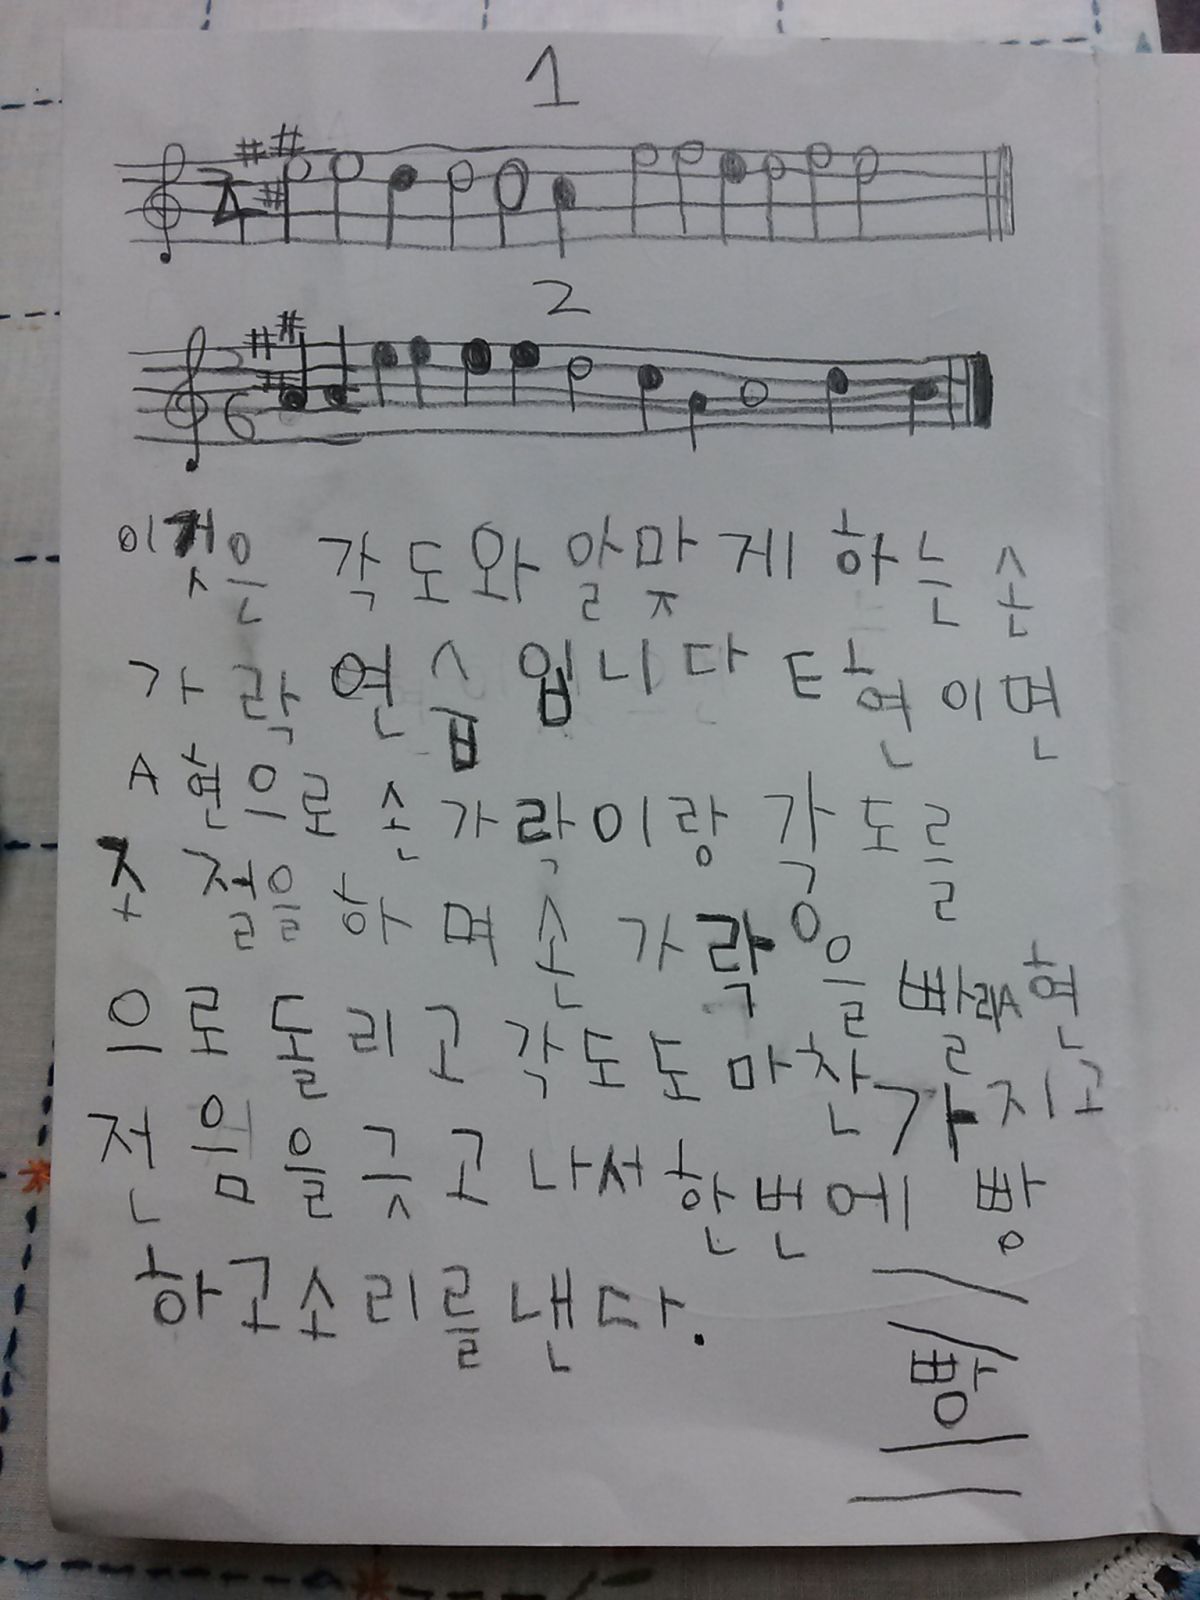 1
2
이것은 각도와 알맞게 하는 손
가락 연습입니다 E현이면
A현으로 손가락이랑 각도를
조절을 하며 손가락을 빨리A현
으로 돌리고 각도도 마찬가지고
전 음을 긋고 나서 한번에 빵
하고 소리를 낸다.
빵